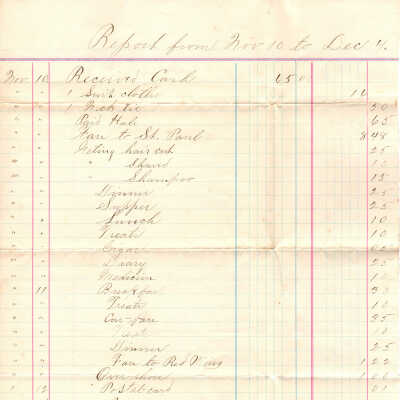 Report from Nov 10 to Dec 4.
Nov. 10 Received Cash 65 0
" " 1 Suit clothes 16
" " 1 Neck tie 50
" " Paid Hall 65
" " Fare to St. Paul 8 48
" " Geting hair cut 25
" " " Shaved 15
" " " Shampoo 15
" " Dinner 25
" " Supper 25
" " Lunch 10
" " Treat 10
" " Cigar
" " Diary 25
" " Medicine 10
" 11 Breakfas
" " Treat 10
" " Car-fare 25
" " Treat 10
" " Dinner 25
" " Fare to Red Wing 1 22
" " Over shoes 1 00
" 12 " Postal card 01